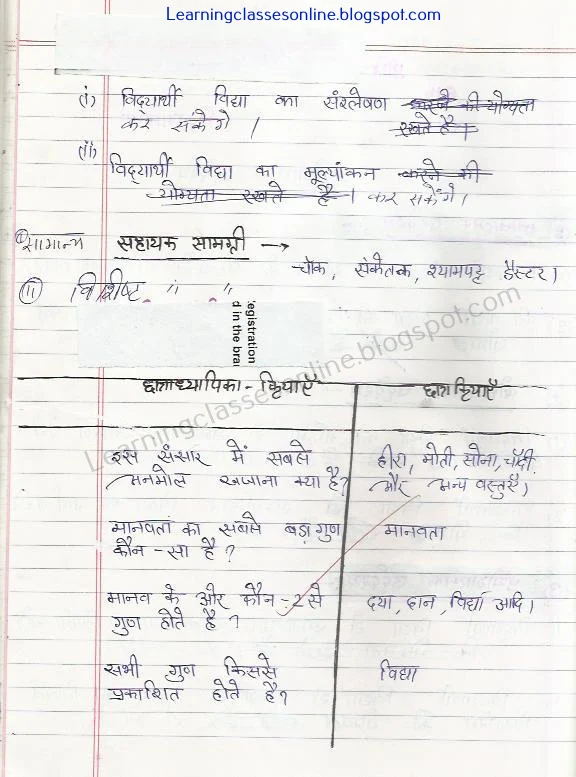 Learningclassesonline.blogspot.com
(i) विद्यार्थी विद्या का संश्लेषण करने की योग्यता
कर सकेंगे । रखते है ।
(ii)
विद्यार्थी विद्या का मूल्यांकन करने की
योग्यता रखते है । कर सकेंगे ।
① सामान्य सहायक सामग्री →
चॉक, संकेतक, श्यामपट्ट डैस्टर ।
(ii) विशिष्ट " "
egistration
d in the bra
Learningclassesonline.blogspot.com
छात्राध्यापिका - क्रियाएँ छात्र क्रियाएँ
इस संसार में सबसे हीरा, मोती, सोना, चाँदी
अनमोल खजाना क्या है? और अन्य वस्तुएँ।
मानवता का सबसे बड़ा गुण मानवता
कौन - सा है ?
मानव के ओर कौन - 2 से दया, दान, विर्द्या आदि ।
गुण होते है ?
सभी गुण किससे विद्या
प्रकाशित होते है?